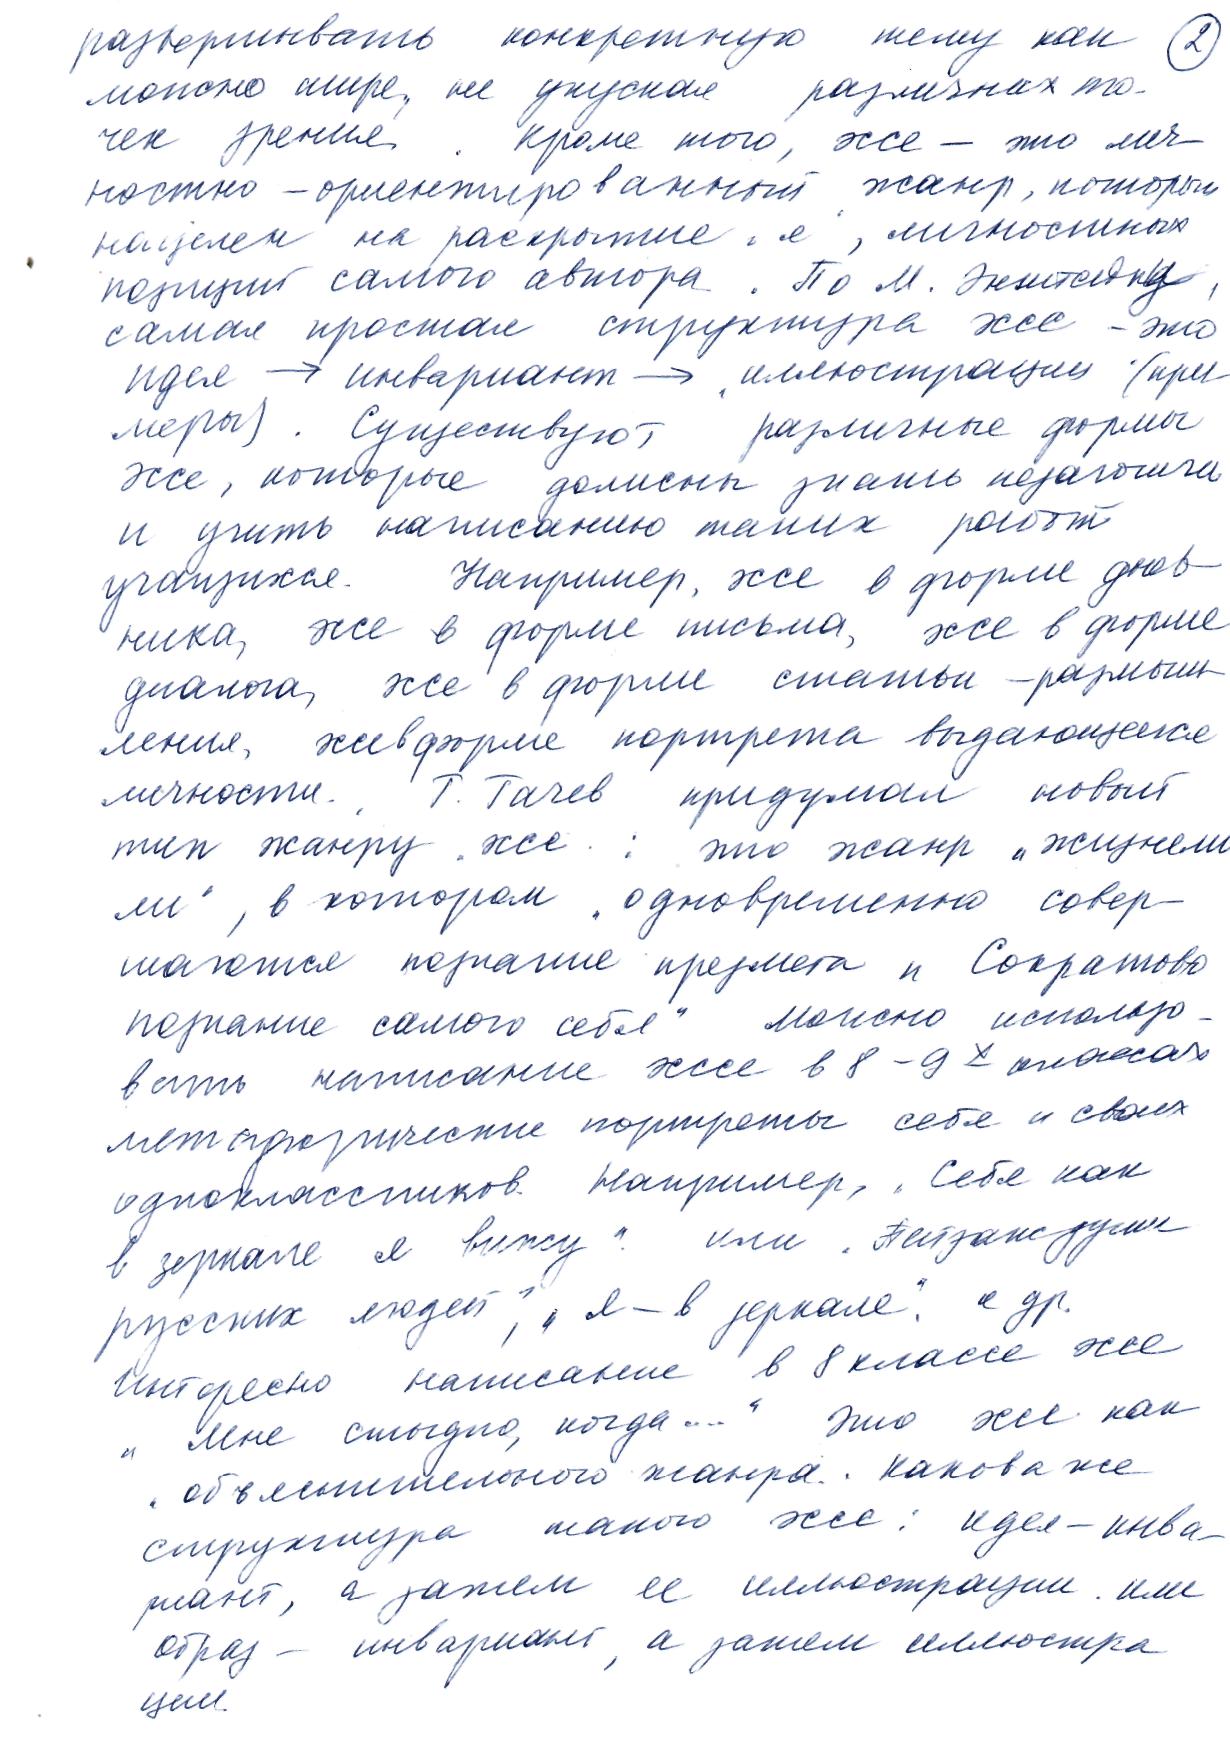 развертывать конкретную тему как ②
можно шире, не упуская различных то-
чек зрения. Кроме того, эссе – это лич-
ностно – ориентированный жанр, который
нацелен на раскрытие „я“, личностных
позиций самого автора. По М. Эпштейну,
самая простая структура эссе – это
идея → инвариант → иллюстрации (при
меры). Существуют различные формы
эссе, которые должны знать педагоги
и учить написанию таких работ
учащихся. Например, эссе в форме днев-
ника, эссе в форме письма, эссе в форме
диалога, эссе в форме статьи – размыш-
ления, эссе в форме портрета выдающейся
личности. Г. Гачев придумал новый
тип жанру эссе: это жанр „жизнемыс
ли“, в котором „одновременно совер-
шаются познание предмета и Сократово
познание самого себя“ Можно использо-
вать написание эссе в 8 – 9х классах
метафорические портреты себя и своих
одноклассников. Например, „Себя как
в зеркале я вижу“ или „Пейзаж души
русских людей“, „Я – в зеркале“ и др.
Интересно написание в 8 классе эссе
„Мне стыдно, когда...“ Это эссе как
объяснительного жанра. Какова же
структура такого эссе: идея – инва-
риант, а затем ее иллюстрации или
образ – инвариант, а затем иллюстра
ции.